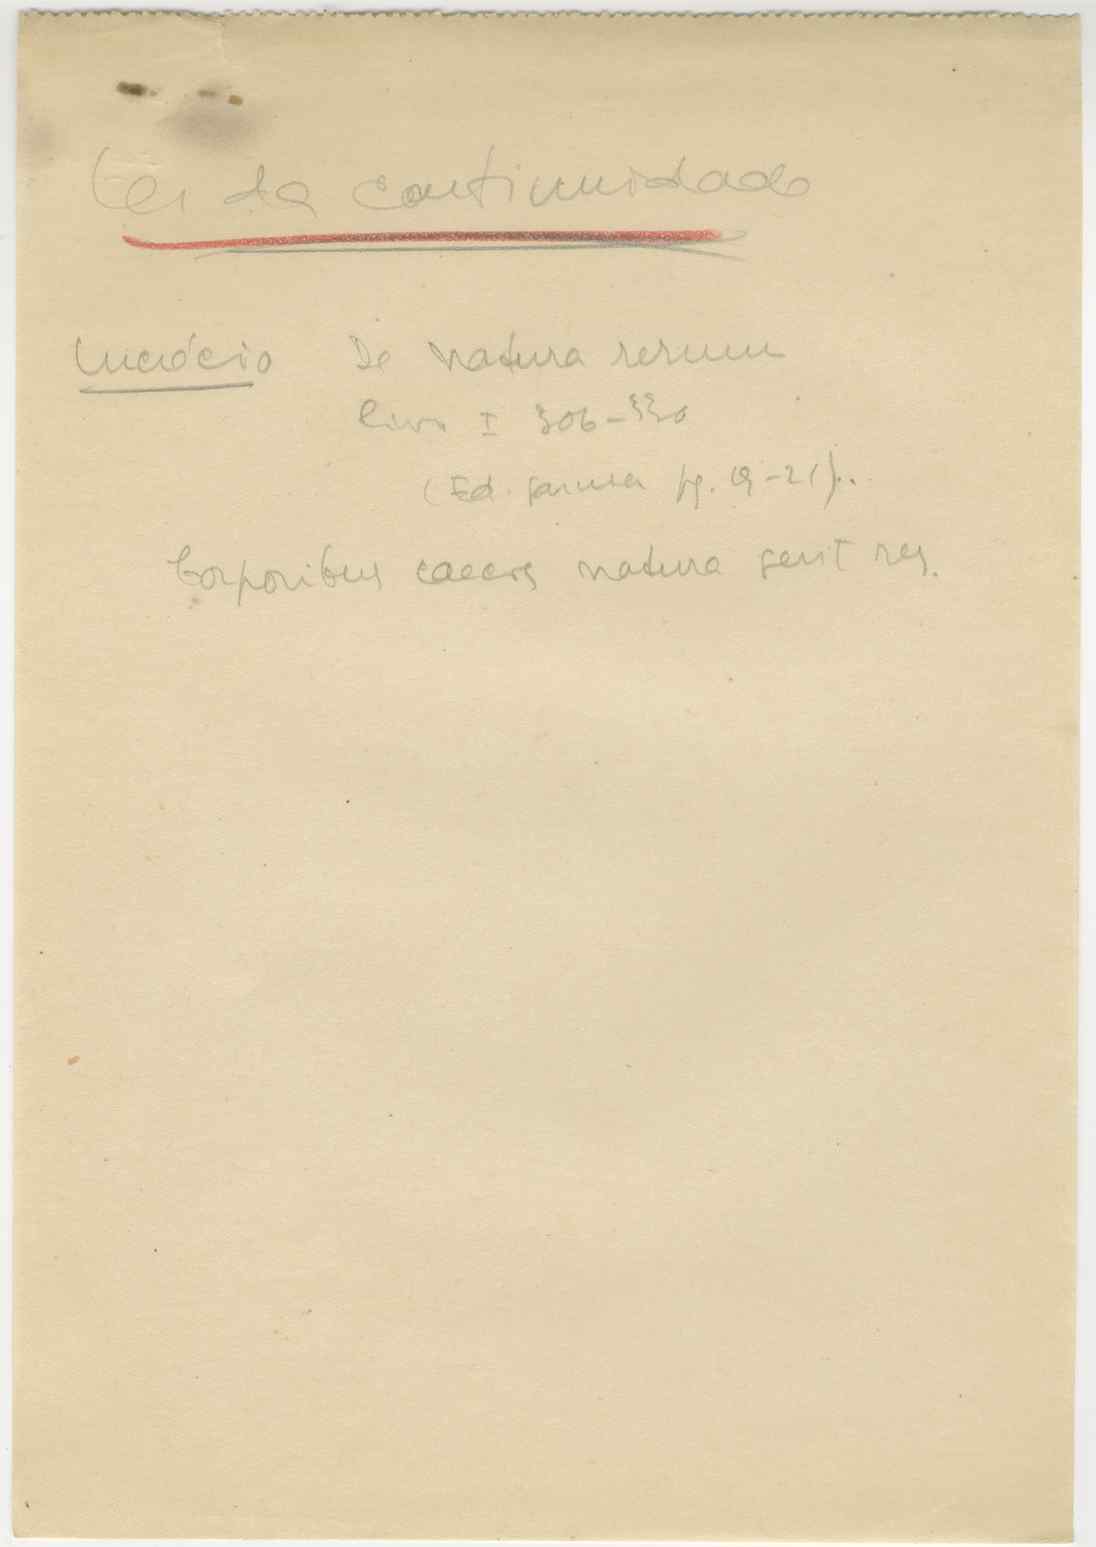 Lei da continuidade
Lucrécio De natura rerum
Livro I 306-330
(Ed. Garnier pg. 19-21).
Corporibus caecis natura gerit res.